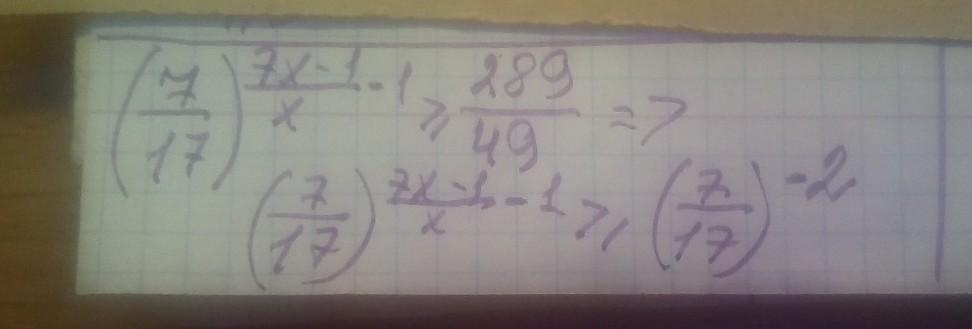 (7/17)^((7x-1)/x - 1) ⩾ 289/49 =>
(7/17)^((7x-1)/x - 1) ⩾ (7/17)^(-2)